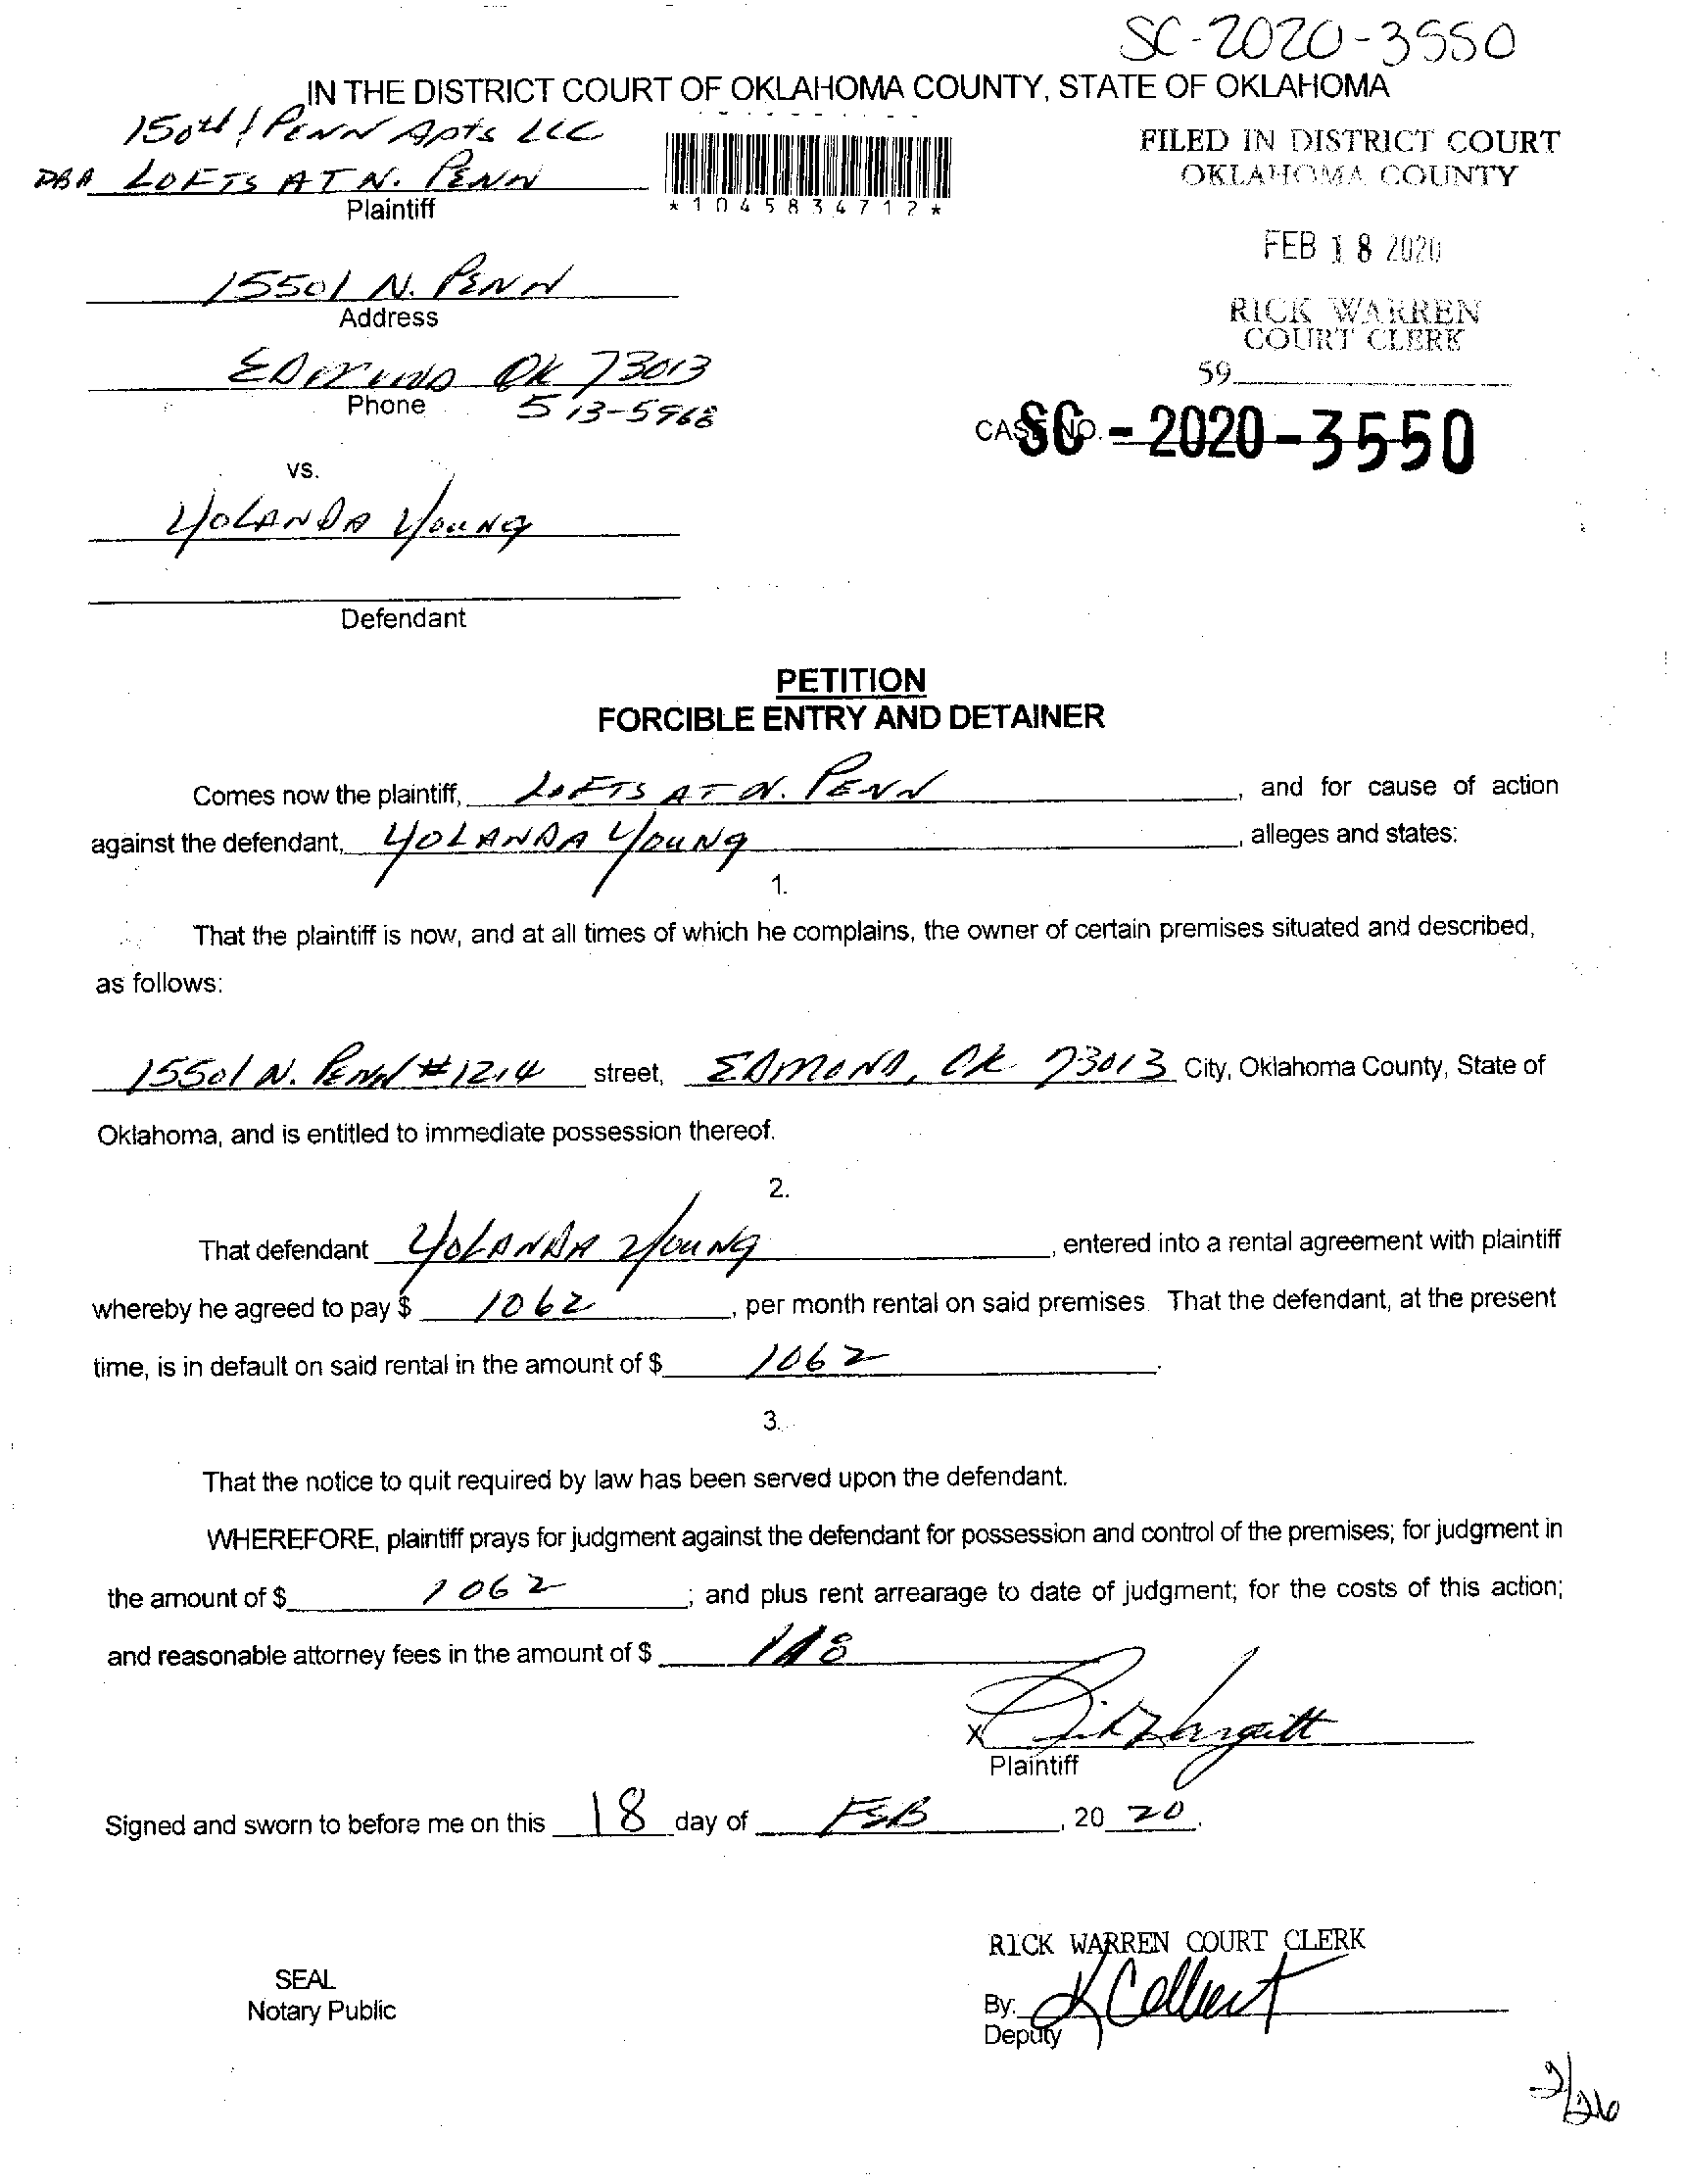 SC-2020-3550
IN THE DISTRICT COURT OF OKLAHOMA COUNTY, STATE OF OKLAHOMA
150th & PENN Apts LLC
DBA LOFTS AT N. PENN
Plaintiff
*1045834712*
FILED IN DISTRICT COURT
OKLAHOMA COUNTY
FEB 18 2020
RICK WARREN
COURT CLERK
59
15501 N. PENN
Address
EDMOND OK 73013
Phone 513-5968
CASE NO. SC-2020-3550
vs.
YOLANDA YOUNG
Defendant
PETITION
FORCIBLE ENTRY AND DETAINER
Comes now the plaintiff, LOFTS AT N. PENN, and for cause of action
against the defendant, YOLANDA YOUNG, alleges and states:
1.
That the plaintiff is now, and at all times of which he complains, the owner of certain premises situated and described,
as follows:
15501 N. PENN #1214 street, EDMOND, OK 73013 City, Oklahoma County, State of
Oklahoma, and is entitled to immediate possession thereof.
2.
That defendant YOLANDA YOUNG, entered into a rental agreement with plaintiff
whereby he agreed to pay $ 1062, per month rental on said premises. That the defendant, at the present
time, is in default on said rental in the amount of $ 1062.
3.
That the notice to quit required by law has been served upon the defendant.
WHEREFORE, plaintiff prays for judgment against the defendant for possession and control of the premises; for judgment in
the amount of $ 1062; and plus rent arrearage to date of judgment; for the costs of this action;
and reasonable attorney fees in the amount of $
X
Plaintiff
Signed and sworn to before me on this 18 day of FEB, 20 20.
RICK WARREN COURT CLERK
SEAL
Notary Public
By: K Colbert
Deputy
2/26